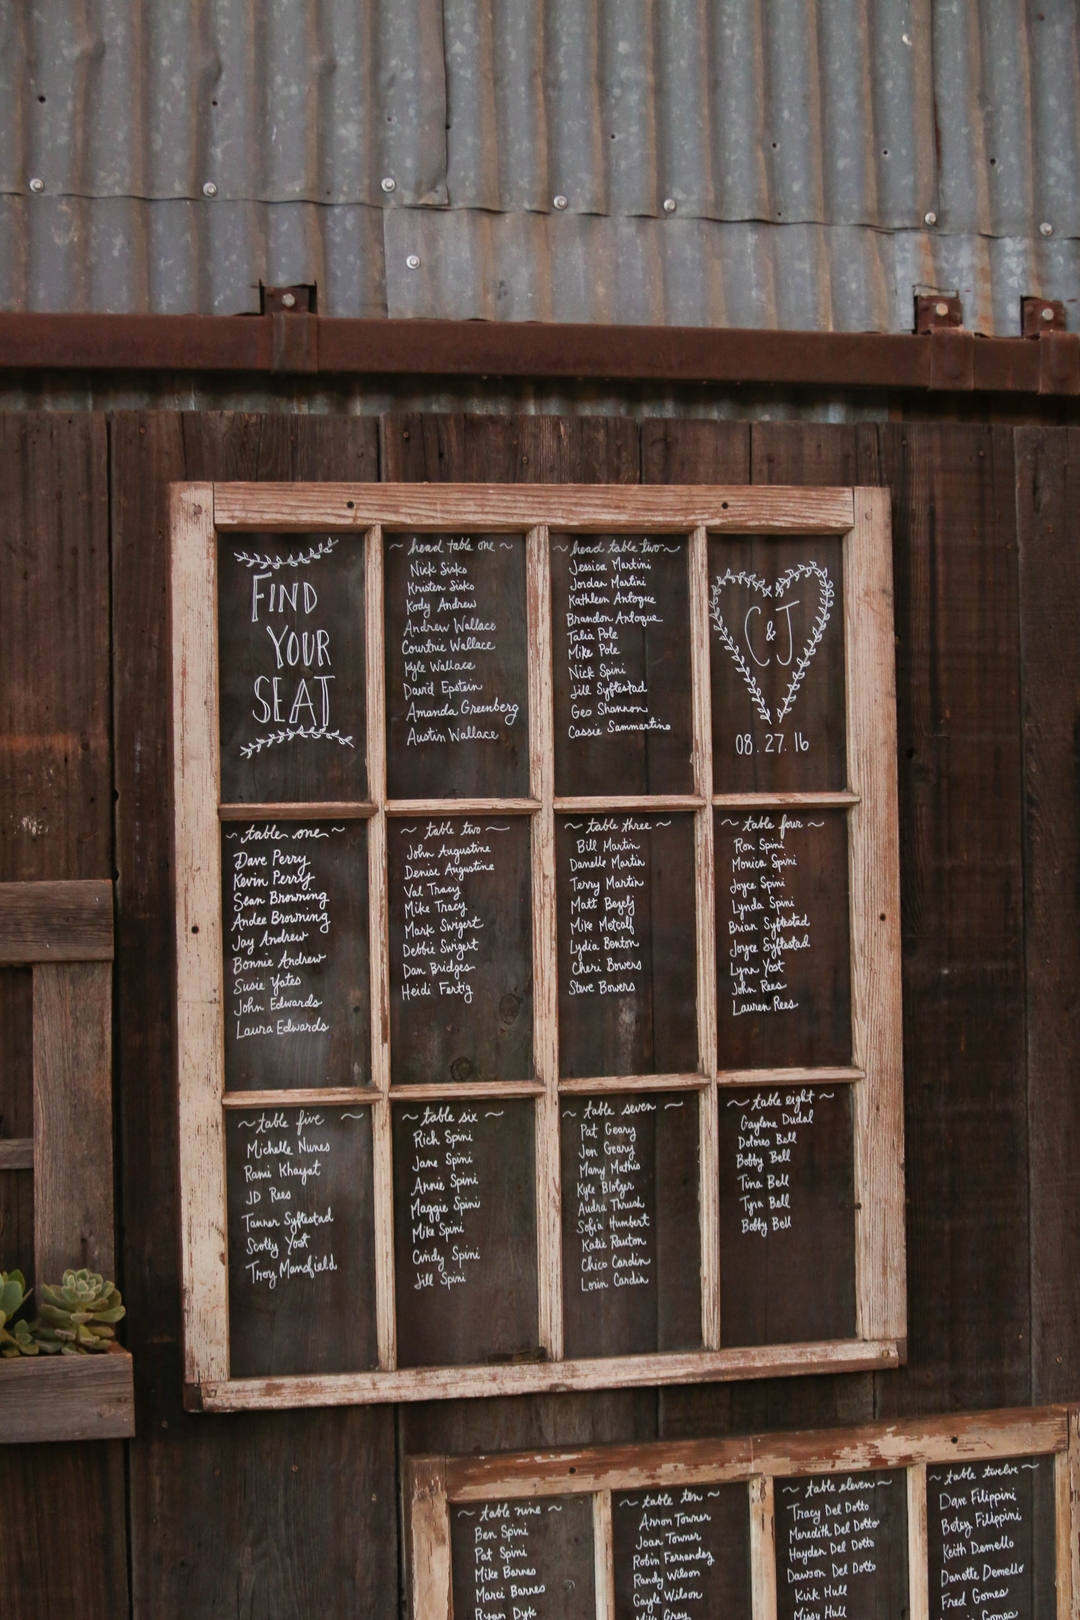 FIND
YOUR
SEAT
~ head table one ~
Nick Sisko
Kristen Sisko
Kody Andrew
Andrew Wallace
Courtnie Wallace
Kyle Wallace
David Epstein
Amanda Greenberg
Austin Wallace
~ head table two ~
Jessica Martini
Jordan Martini
Kathleen Antoque
Brandon Antoque
Talia Pole
Mike Pole
Nick Spini
Jill Syftestad
Geo Shannon
Cassie Sammartino
C & J
08.27.16
~ table one ~
Dave Perry
Kevin Perry
Sean Browning
Andee Browning
Jay Andrew
Bonnie Andrew
Susie Yates
John Edwards
Laura Edwards
~ table two ~
John Augustine
Denise Augustine
Val Tracy
Mike Tracy
Mark Swigert
Debbie Swigert
Dan Bridges
Heidi Fertig
~ table three ~
Bill Martin
Danelle Martin
Terry Martin
Matt Begelj
Mike Metcalf
Lydia Benton
Cheri Bowers
Steve Bowers
~ table four ~
Ron Spini
Monica Spini
Joyce Spini
Lynda Spini
Brian Syftestad
Joyce Syftestad
Lynn Yost
John Rees
Lauren Rees
~ table five ~
Michelle Nunes
Rami Khayat
JD Rees
Tanner Syftestad
Scotty Yost
Troy Mansfield
~ table six ~
Rich Spini
Jane Spini
Annie Spini
Maggie Spini
Mike Spini
Cindy Spini
Jill Spini
~ table seven ~
Pat Geary
Jen Geary
Many Mathis
Kyle Blotzer
Audra Thrush
Sofia Humbert
Katie Rauton
Chico Cardin
Lorin Cardin
~ table eight ~
Gaylene Dudal
Dolores Bell
Bobby Bell
Tina Bell
Tyra Bell
Bobby Bell
~ table nine ~
Ben Spini
Pat Spini
Mike Barnes
Marci Barnes
Ryan Dyk
~ table ten ~
Arron Towner
Joan Towner
Robin Fernandez
Randy Wilson
Gayle Wilson
~ table eleven ~
Tracy Del Dotto
Meredith Del Dotto
Hayden Del Dotto
Dawson Del Dotto
Kirk Hull
Missy Hull
~ table twelve ~
Dave Filippini
Betsy Filippini
Keith Demello
Danette Demello
Fred Gomes
Gomes